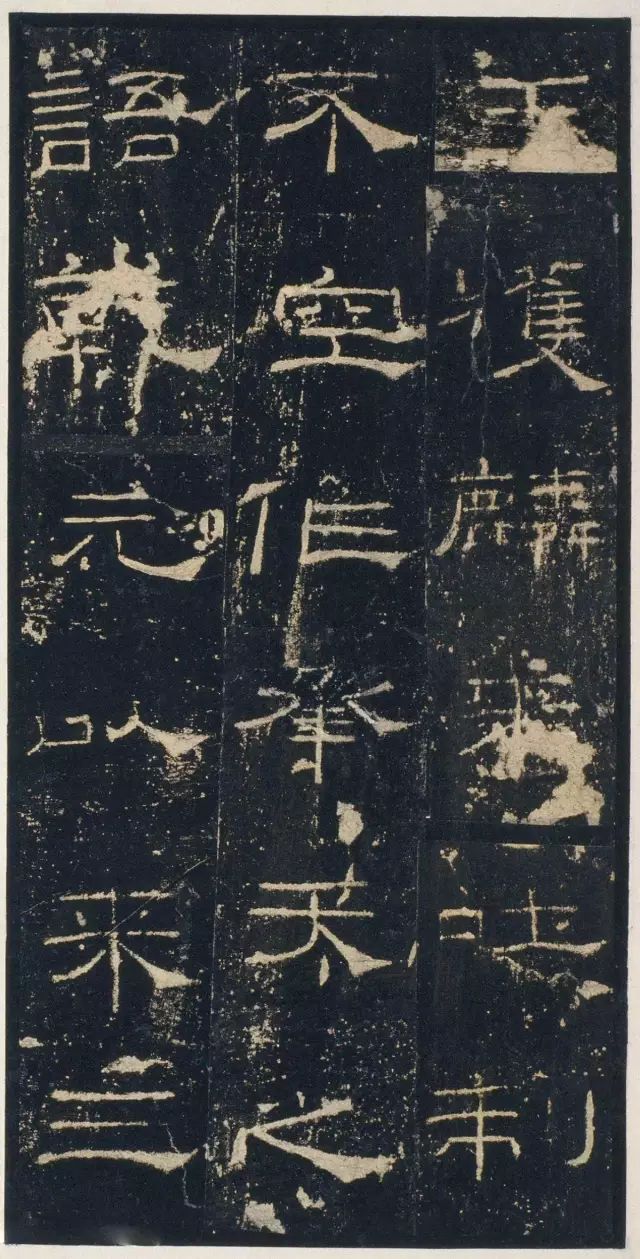 王獲麟來吐制
不空作承天之
語乾元以來三